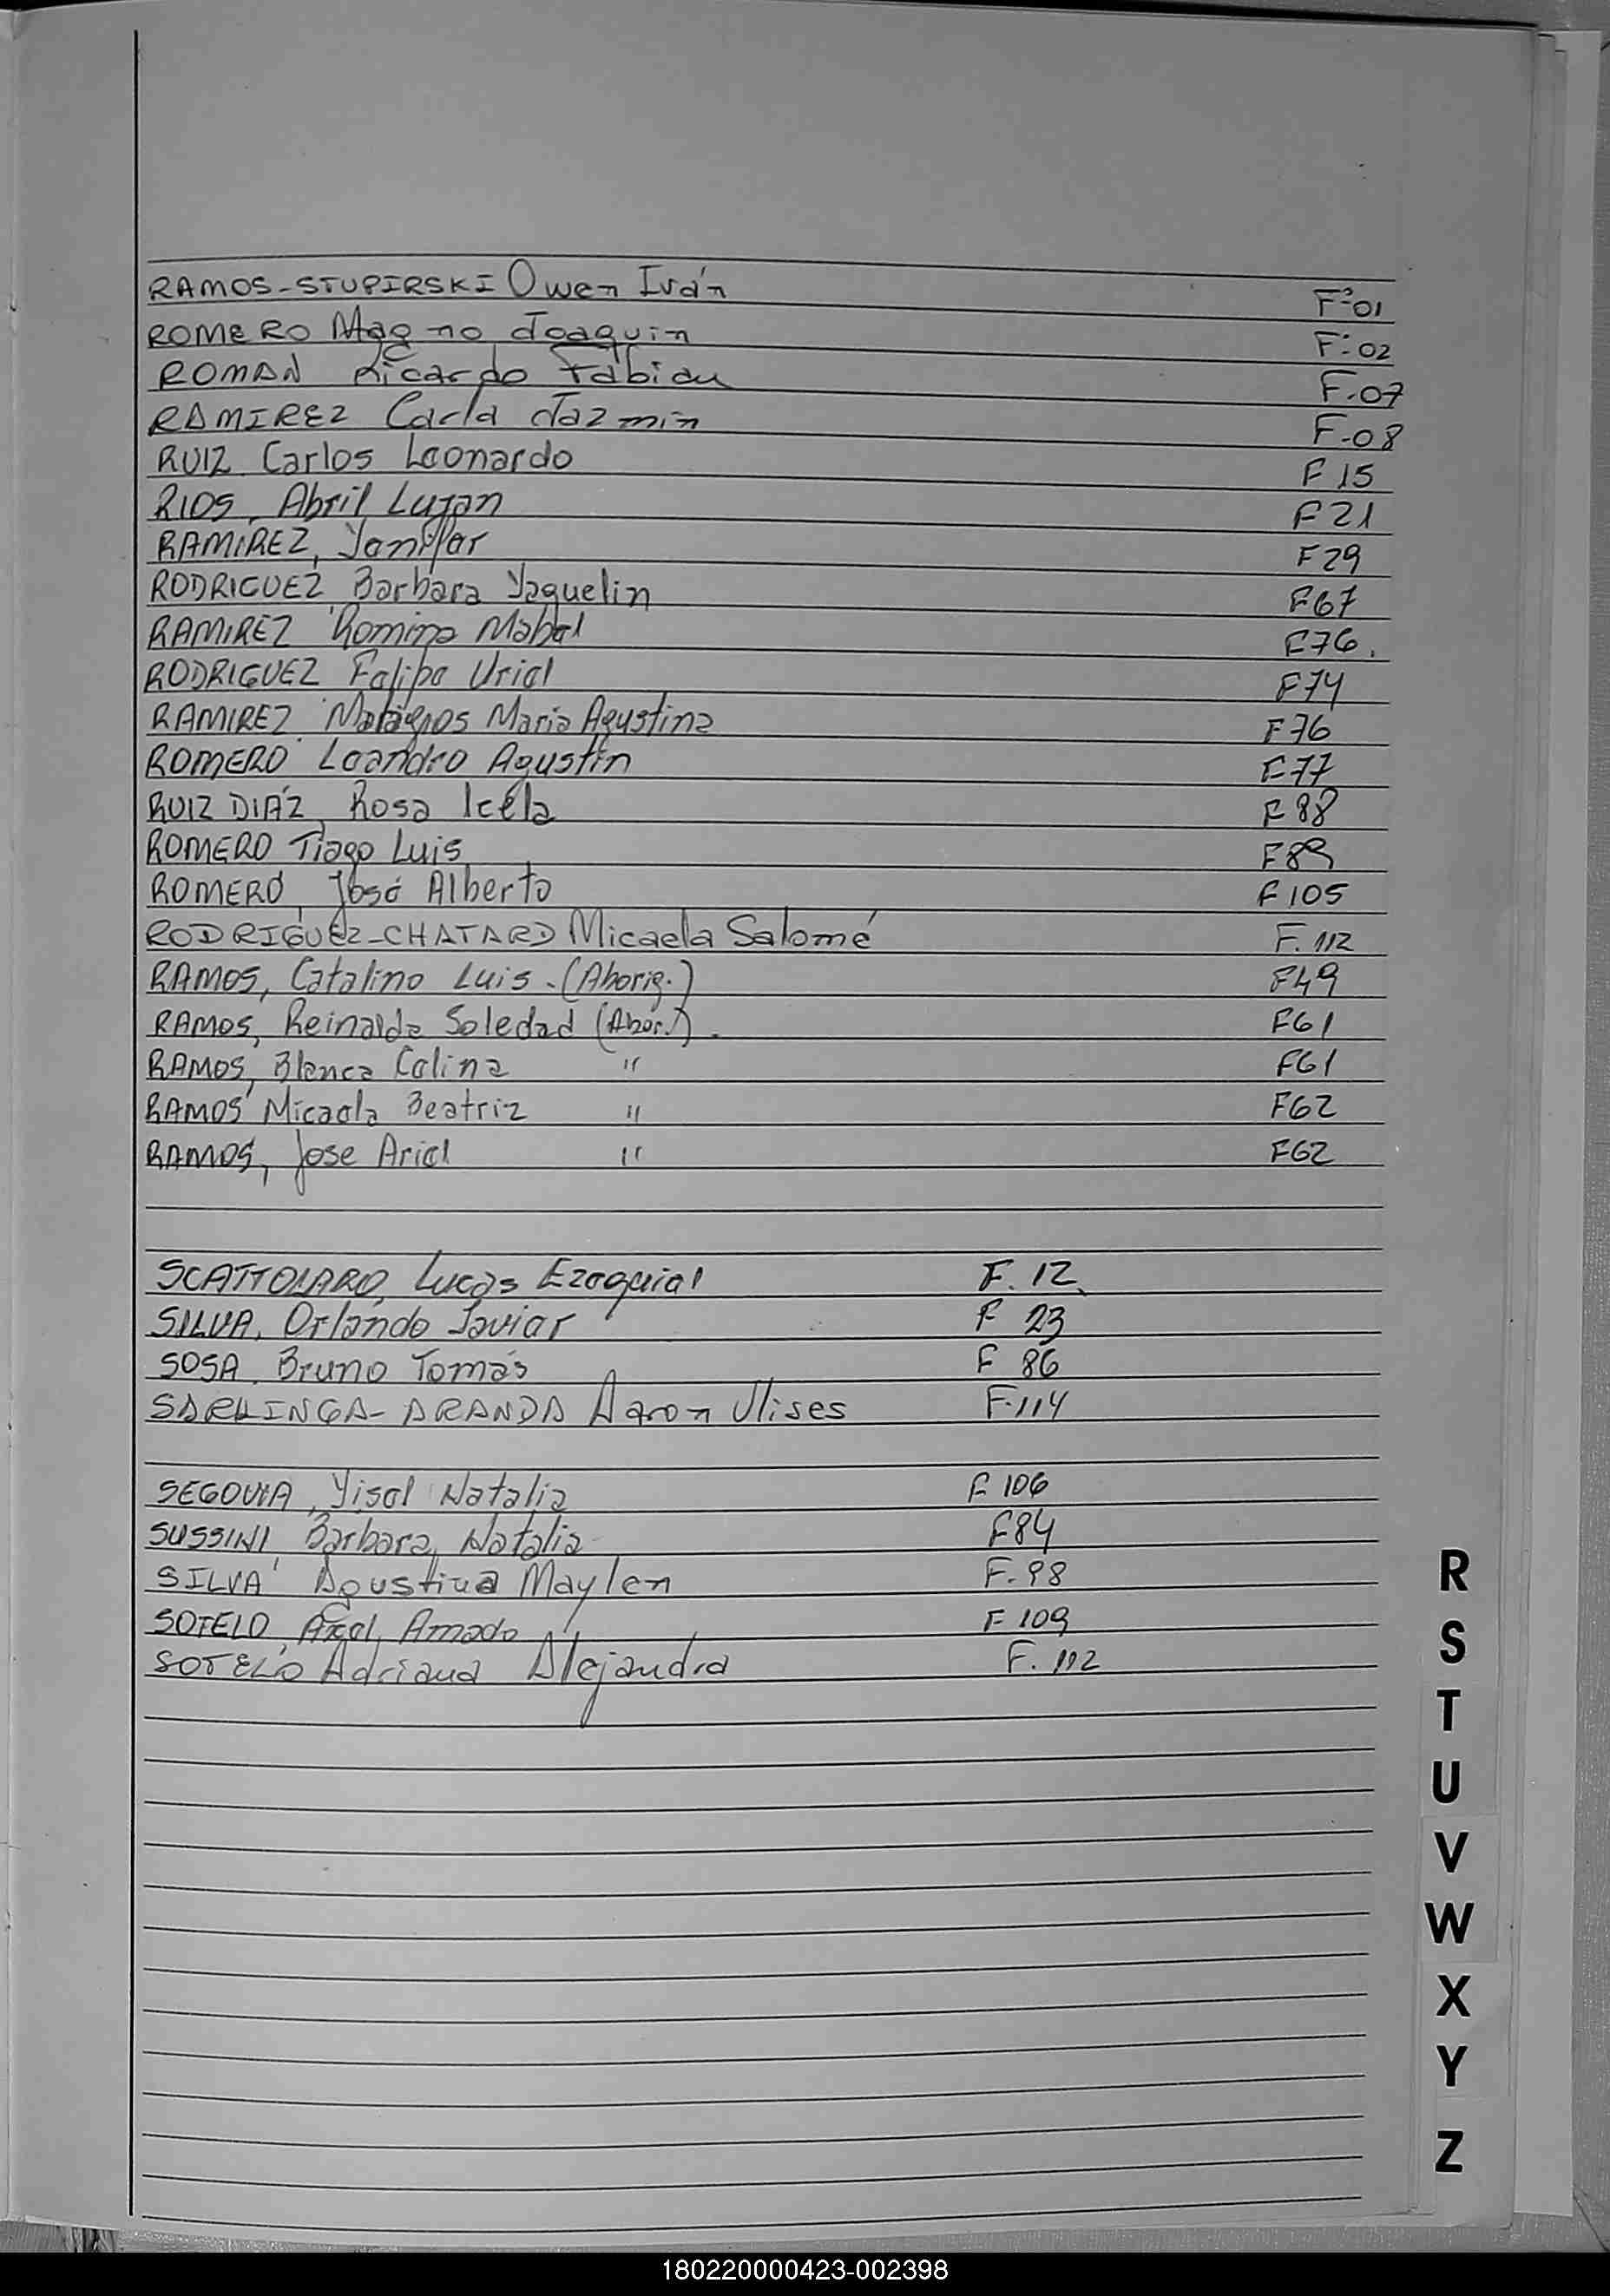 RAMOS-STUPIRSKI Owen Iván F:01
ROMERO Magno Joaquin F:02
ROMAN Ricardo Fabian F.07
RAMIREZ Carla Jazmin F.08
RUIZ Carlos Leonardo F 15
RIOS, Abril Lujan F 21
RAMIREZ, F 29
RODRIGUEZ, Barbara Yaquelin F67
RAMIREZ Romina Mabel F76.
RODRIGUEZ Felipe Uriel F74
RAMIREZ Milagros Maria Agustina F76
ROMERO Leandro Agustín F77
RUIZ DIAZ, Rosa Icela F 88
ROMERO Tiago Luis F89
ROMERO, José Alberto F105
RODRIGUEZ-CHATARD Micaela Salomé F. 112
RAMOS, Catalino Luis - (Aborig.) F49
RAMOS, Reinalda Soledad (Abor.) F61
RAMOS, Blanca Celina " F61
RAMOS Micaela Beatriz " F62
RAMOS, Jose Ariel " F62
SCATTOLARO, Lucas Ezequiel F. 12
SILVA, Orlando Javier F 23
SOSA, Bruno Tomás F 86
SARLINGA-ARANDA Aaron Ulises F.114
SEGOVIA, Yisel Natalia F 106
SUSSINI, Barbara Natalia F84
SILVA Agustina Maylen F.98
SOTELO, Axel Amado F 109
SOTELO Adriana Alejandra F. 112
R
S
T
U
V
W
X
Y
Z
180220000423-002398